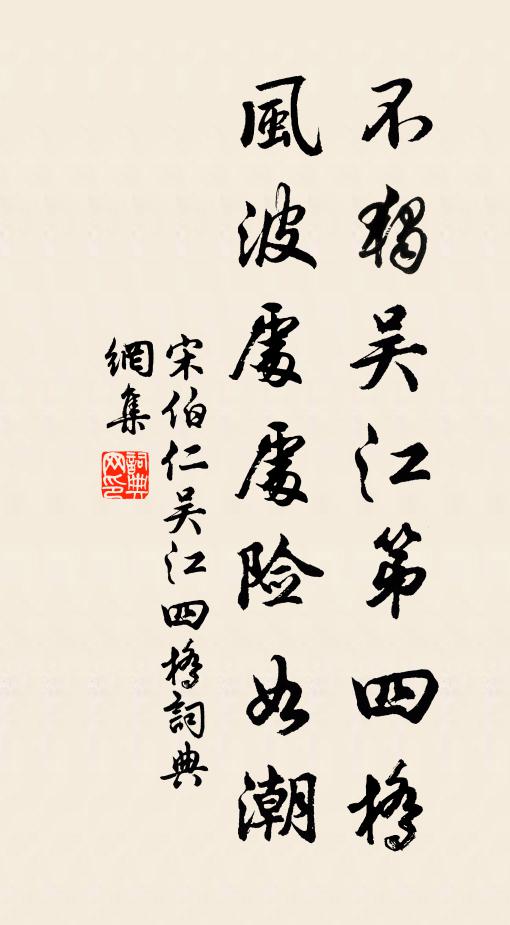 不獨吴江第四橋
風波處處险如潮
宋伯仁吴江四橋詞典
網集
詞典网印